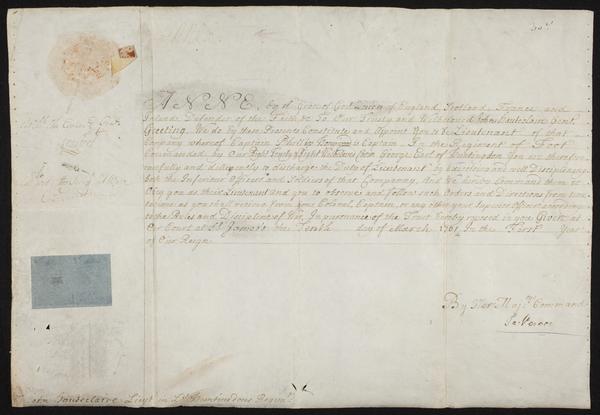 ANNE, by ye Grace of God Queen of England, Scotland, France and
Ireland, Defender of the Faith &c To Our Trusty and Welbeloved John Gent
Greeting. We do by these Presents Constitute and Appoint You to be Lieutenant of that
Company whereof Captain Philip is Captain In the Regiment of Foot
Commanded by Our Right Trusty & Right George Earl of Huntington You are therefore
carefully and diligently to discharge the Duty of Lieutenant by Exercising and well Disciplining
both the Inferiour Officers and Soldiers of that Company, And We do hereby Command them to
Obey you as their Lieutenant and you to observe and follow such Orders and Directions from time
to time as you shall receive from your Colonel, Captain, or any other your Superior Officer according
to the Rules and Discipline of War In pursuance of the Trust hereby reposed in you Given at
Our Court at St. James's the Tenth day of March 1701 In the First Year
of Our Reign
By Her Majts. Command
Lieut in Ld Huntingdons Regimt.